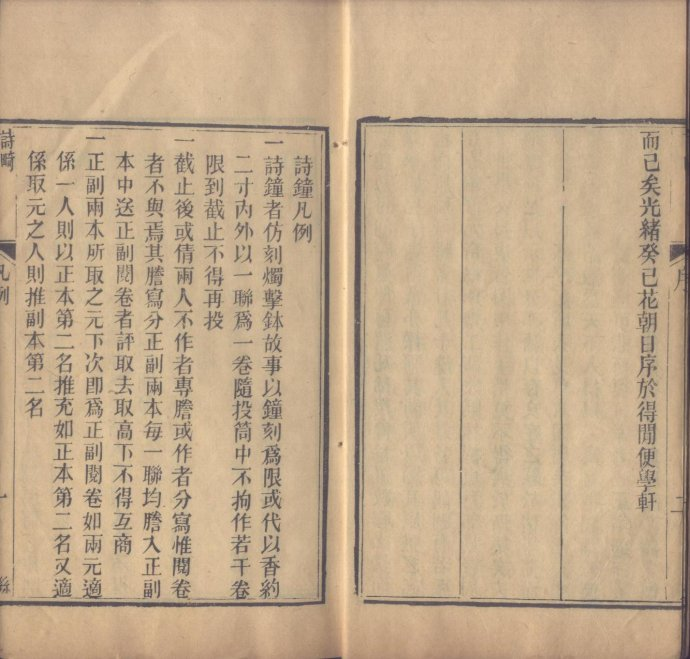 而已矣光緒癸巳花朝日序於得閒便學軒
序
二
詩鐘凡例
一詩鐘者仿刻燭擊鉢故事以鐘刻爲限或代以香約
二寸內外以一聯爲一卷隨投筒中不拘作若干卷
限到截止不得再投
一截止後或倩兩人不作者專謄或作者分寫惟閱卷
者不與焉其謄寫分正副兩本每一聯均謄入正副
本中送正副閱卷者評取去取高下不得互商
一正副兩本所取之元下次即爲正副閱卷如兩元適
係一人則以正本第二名推充如正本第二名又適
係取元之人則推副本第二名
詩畸
凡例
一